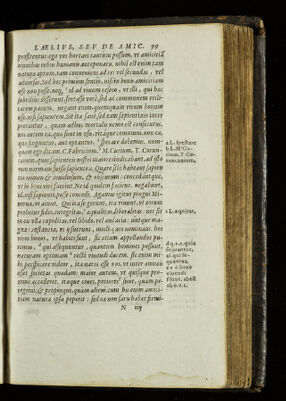 LAELIVS, SEV DE AMIC. 99
ego vos hortari tantùm possum, vt amicitiã
omnibus rebus humanis anteponatis. nihil est enim tam
naturæ aptum, tam conueniens ad res vel secundas, vel
aduersas. Sed hoc primùm sentio, nisi in bonis amicitiam
esse non posse. neq, id ad viuum reseco, vt illi, qui hæc
subtilius disserunt, fortasse verè, sed ad communem vtili-
tatem parum. negant enim, quenquam virum bonum
esse, nisi sapientem. Sit ita sanè. sed eam sapientiam inter
pretantur, quam adhuc mortalis nemo est consecutus.
nos autem ea, quæ sunt in vsu, vitáque communi, non ea,
quæ finguntur, aut optantur, sperare debemus. nun-
quam ego dicam, C. Fabricium, M. Curium, T. Corun-
canium, quos sapientes nostri maiores iudicabant, ad isto
rum normam fuisse sapientes. Quare sibi habeant sapien
tiæ nomen & inuidiosum, & obscurum: concedántque,
vt hi boni viri fuerint. Ne id quidem facient. negabunt,
id, nisi sapienti, posse concedi. Agamus igitur pingui Mi-
nerua, vt aiunt. Qui ita se gerunt, ita viuunt, vt eorum
probetur fides, integritas, æqualitas, liberalitas: nec sit
in eis vlla cupiditas, vel libido, vel audacia: sintque ma-
gna constantia
viros bonos, vt habiti sunt, sic etiam appellandos pu-
temus, quia sequantur, quantum homines possunt,
naturam optimam rectè viuendi ducem. sic enim mi-
hi perspicere videor, ita natos esse nos, vt inter omneis
esset societas quædam: maior autem, vt quisque pro-
ximè accederet. itaque ciues potiores sunt, quàm pe-
regrini, & propinqui, quàm alieni. cum his enim amici-
tiam natura ipsa peperit: sed ea non satis habet firmi-
N iij